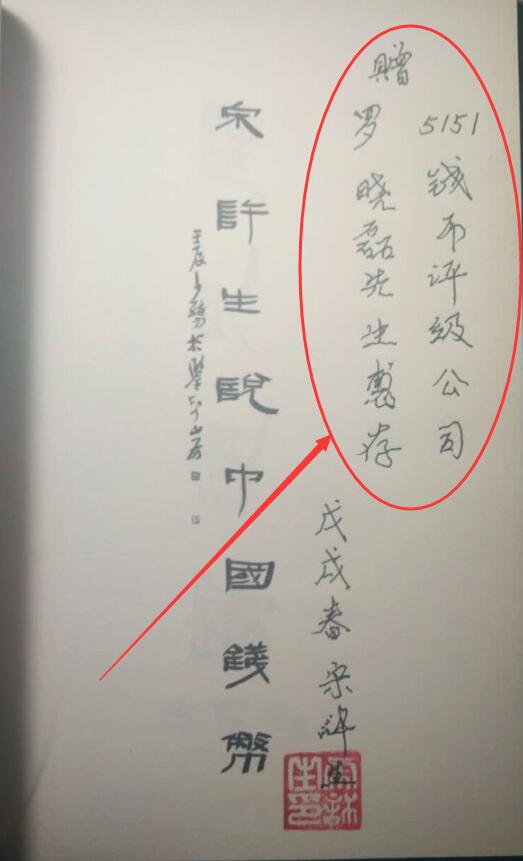 赠
5151钱币评级公司
罗晓磊先生惠存
戊戌春 宋許生
宋許生說中國錢幣
宋許生印